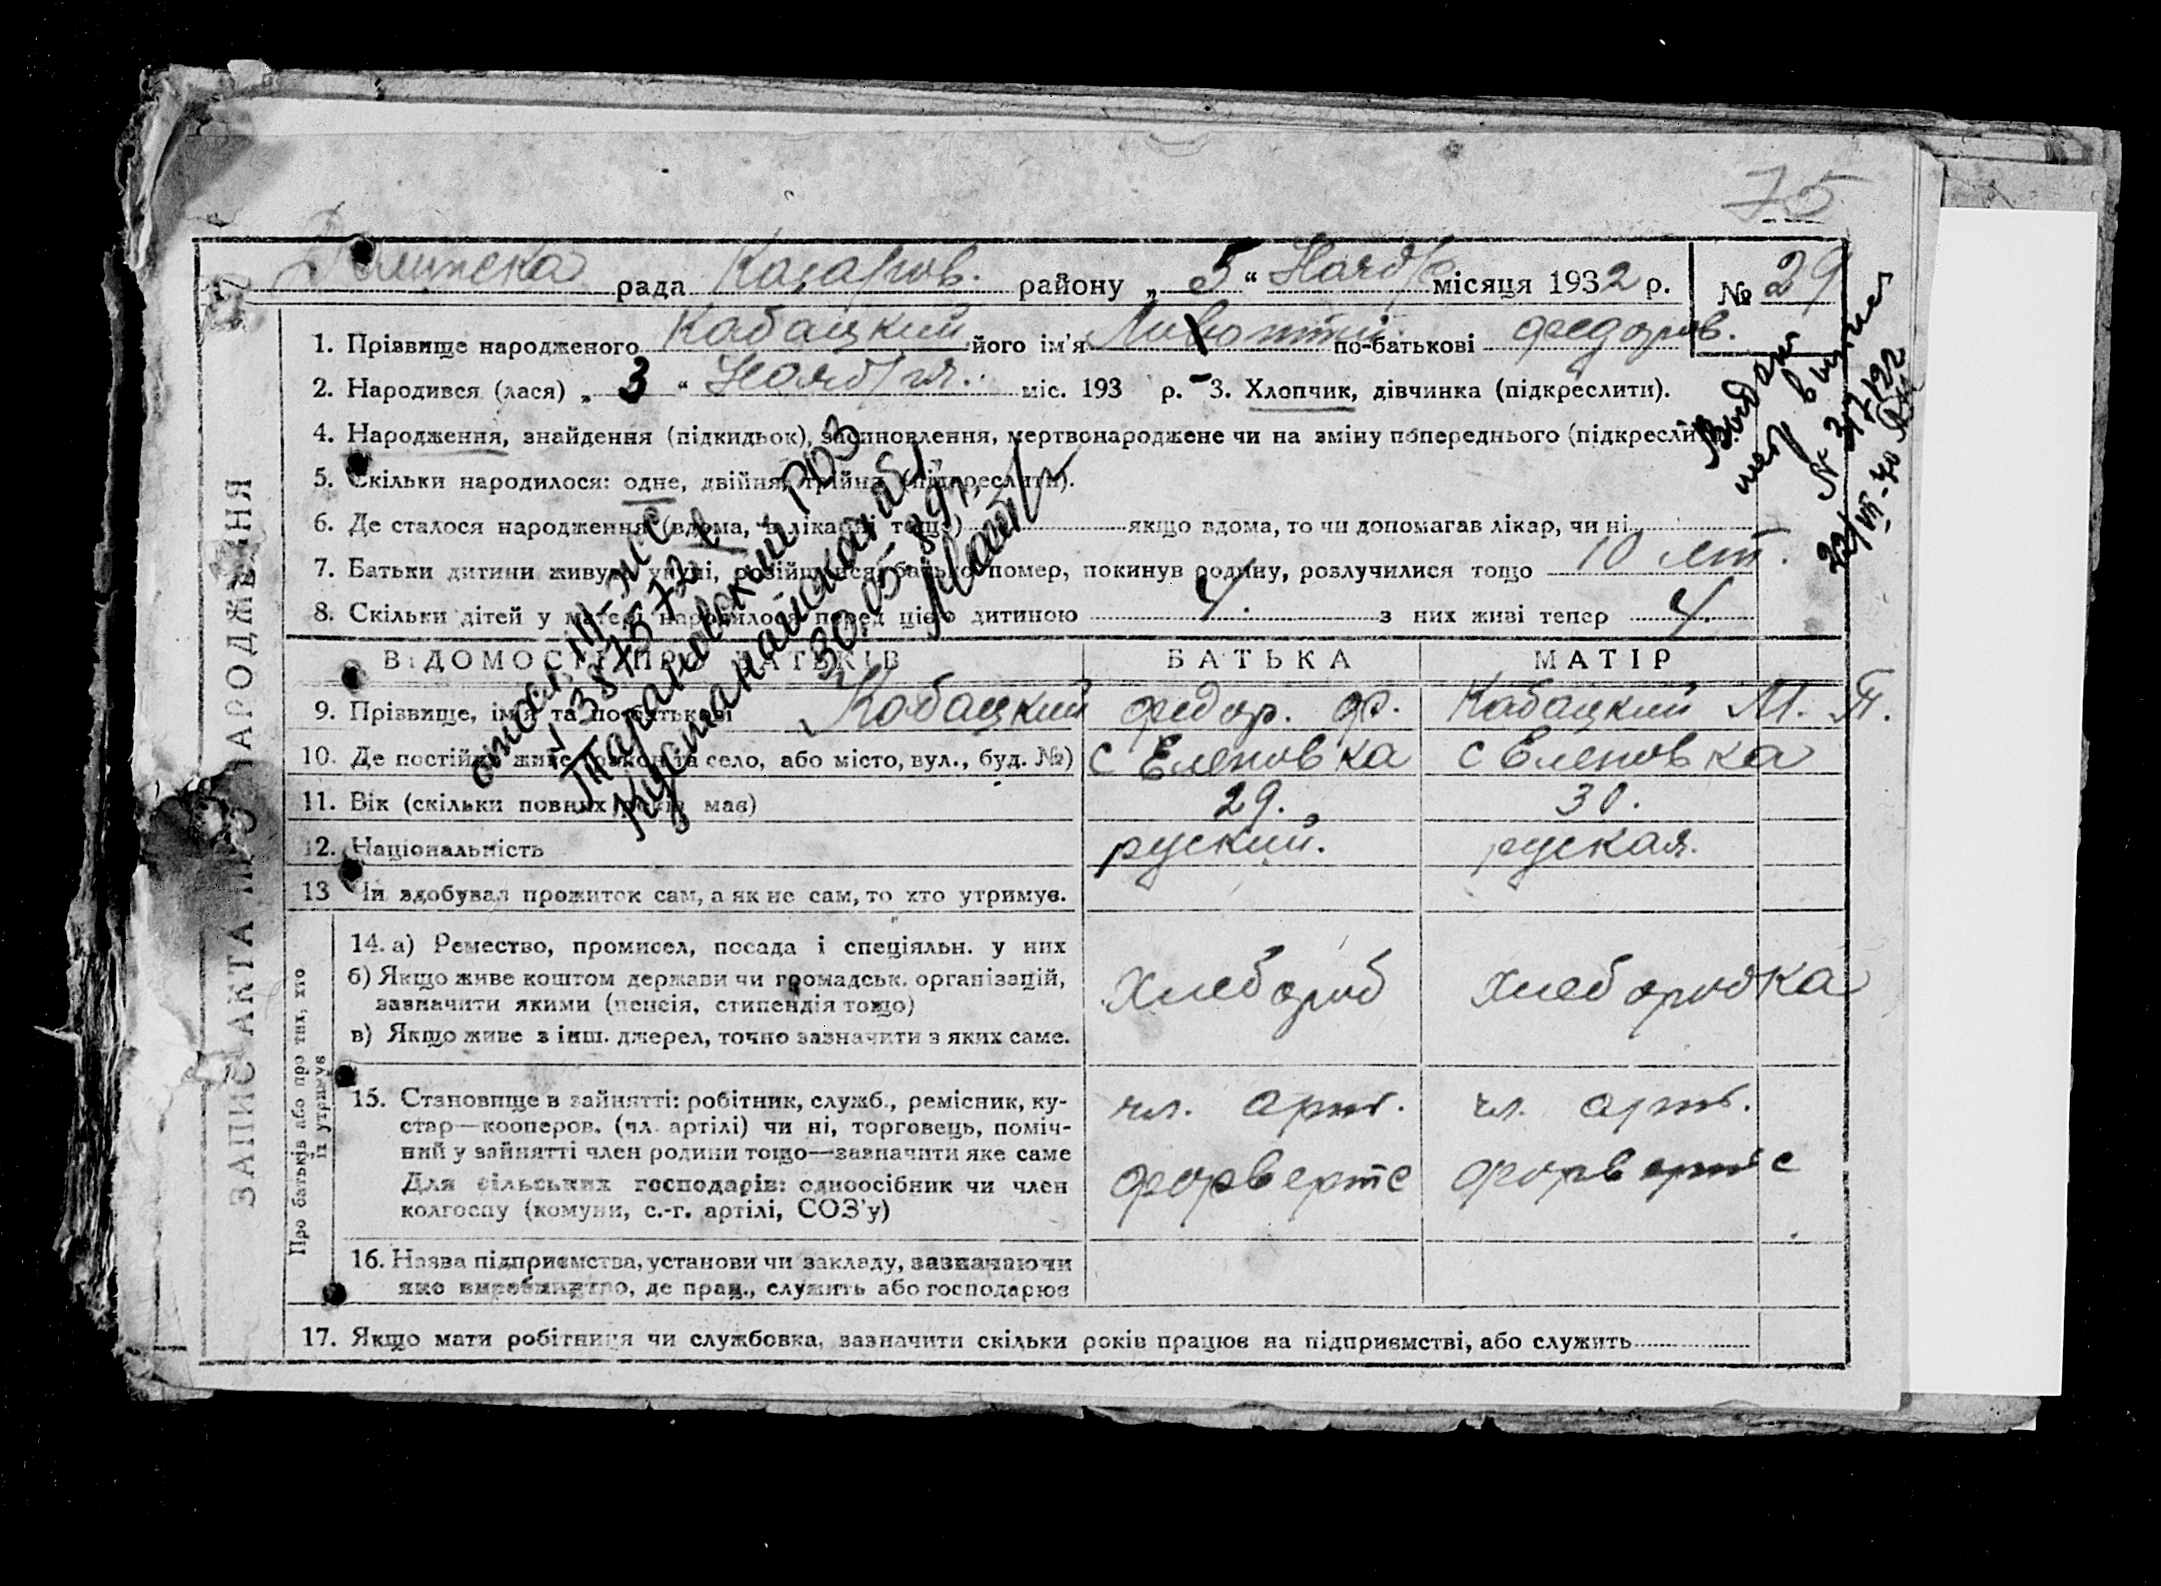 75
рада район у „ 5 “ Ноября місяця 1932 р. № 29
1. Прізвище народженого Кабацкий його ім'я по-батькові федоров.
2. Народився (лася) „ 3 “ Ноября міс. 193 р. 3. Хлопчик, дівчинка (підкреслити).
4. Народження, знайдення (підкидьок), засиновлення, мертвонароджене чи на зміну попереднього (підкреслити).
5. Скільки народилося: одне, двійня, трійня (підкреслити).
6. Де сталося народження (вдома, в лікарні тощо) якщо вдома, то чи допомагав лікар, чи ні
7. Батьки дитини живуть помер, покинув родину, розлучилися тощо 10 лет.
8. Скільки дітей у матері народилося перед цією дитиною 4. з них живі тепер 4.
ВІДОМОСТІ ПРО БАТЬКІВ БАТЬКА МАТІР
9. Прізвище, ім'я та по-батькові Кабацкий федор. ф. Кабацкий М. Т.
10. Де постійно живе село, або місто, вул., буд. №) с Еленовка с Еленовка
11. Вік (скільки повних років має) 29. 30.
12. Національність руский. руская.
13 Чи здобував прожиток сам, а як не сам, то хто утримує.
14. а) Ремество, промисел, посада і спеціяльн. у них
б) Якщо живе коштом держави чи громадськ. організацій,
зазначити якими (пенсія, стипендія тощо)
хлебороб хлеборобка
в) Якщо живе з інш. джерел, точно зазначити з яких саме.
15. Становище в зайнятті: робітник, служб., ремісник, ку-
стар—кооперов. (чл. артілі) чи ні, торговець, поміч-
ний у зайнятті член родини тощо—зазначити яке саме
Для сільських господарів: одноосібник чи член
колгоспу (комуни, с.-г. артілі, СОЗ'у)
чл. арт. чл. арт.
форвертс форвертс
16. Назва підприємства, установи чи закладу, зазначаючи
яке виробництво, де прац., служить або господарює
17. Якщо мати робітниця чи службовка, зазначити скільки років працює на підприємстві, або служить
ЗАПИС АКТА ПРО НАРОДЖЕННЯ
Про батьків або про тих, хто
їх утримує
Тарановский РОЗ
Кустанайская обл.
30.05.89г.